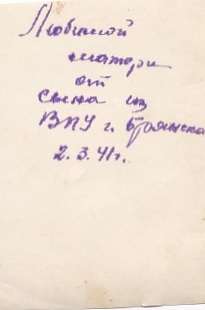 Любимой
матери
от
сына из
ВПУ г. Брянска
2.3.41г.